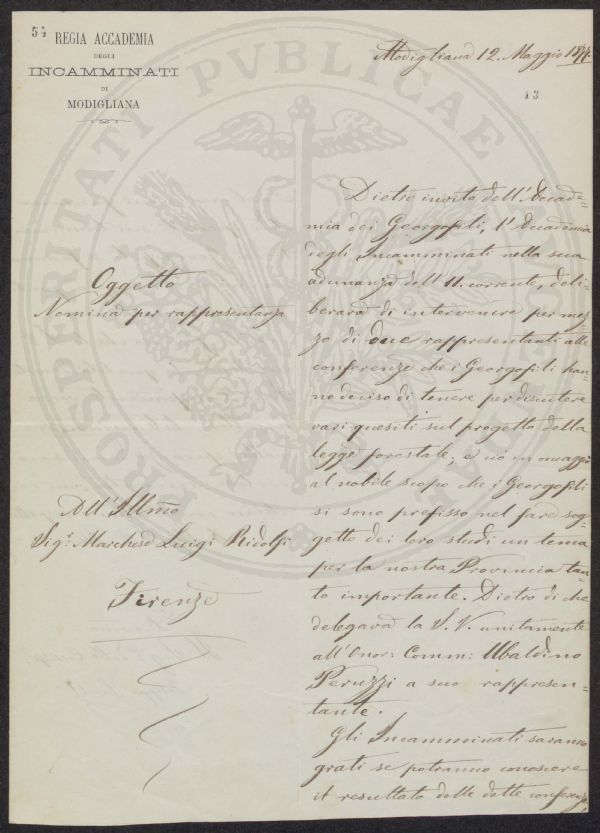 54
REGIA ACCADEMIA
DEGLI
INCAMMINATI
DI
MODIGLIANA
Modigliana 12. Maggio 1877.
13
Oggetto
Nomina per rappresentanza
All'Illmo
Sig.r Marchese Luigi Ridolfi
Firenze
Dietro invito dell'Accade=
mia dei Georgofili, l'Accademia
degli Incamminati nella sua
adunanza dell'11. corrente, deli=
berava di intervenire per mez=
zo di due rappresentanti alle
conferenze che i Georgofili han=
no deciso di tenere per discutere
vari quesiti sul progetto della
legge forestale; e ciò in omaggio
al nobile scopo che i Georgofili
si sono prefisso nel fare sog=
getto dei loro studi un tema
per la nostra Provincia tan=
to importante. Dietro di che
delegava la S. V. unitamente
all'Onor: Comm: Ubaldino
Peruzzi a suo rappresen=
tante.
Gli Incamminati saranno
grati se potranno conoscere
il resultato delle dette conferenze,
PROSPERITATI PUBLICAE